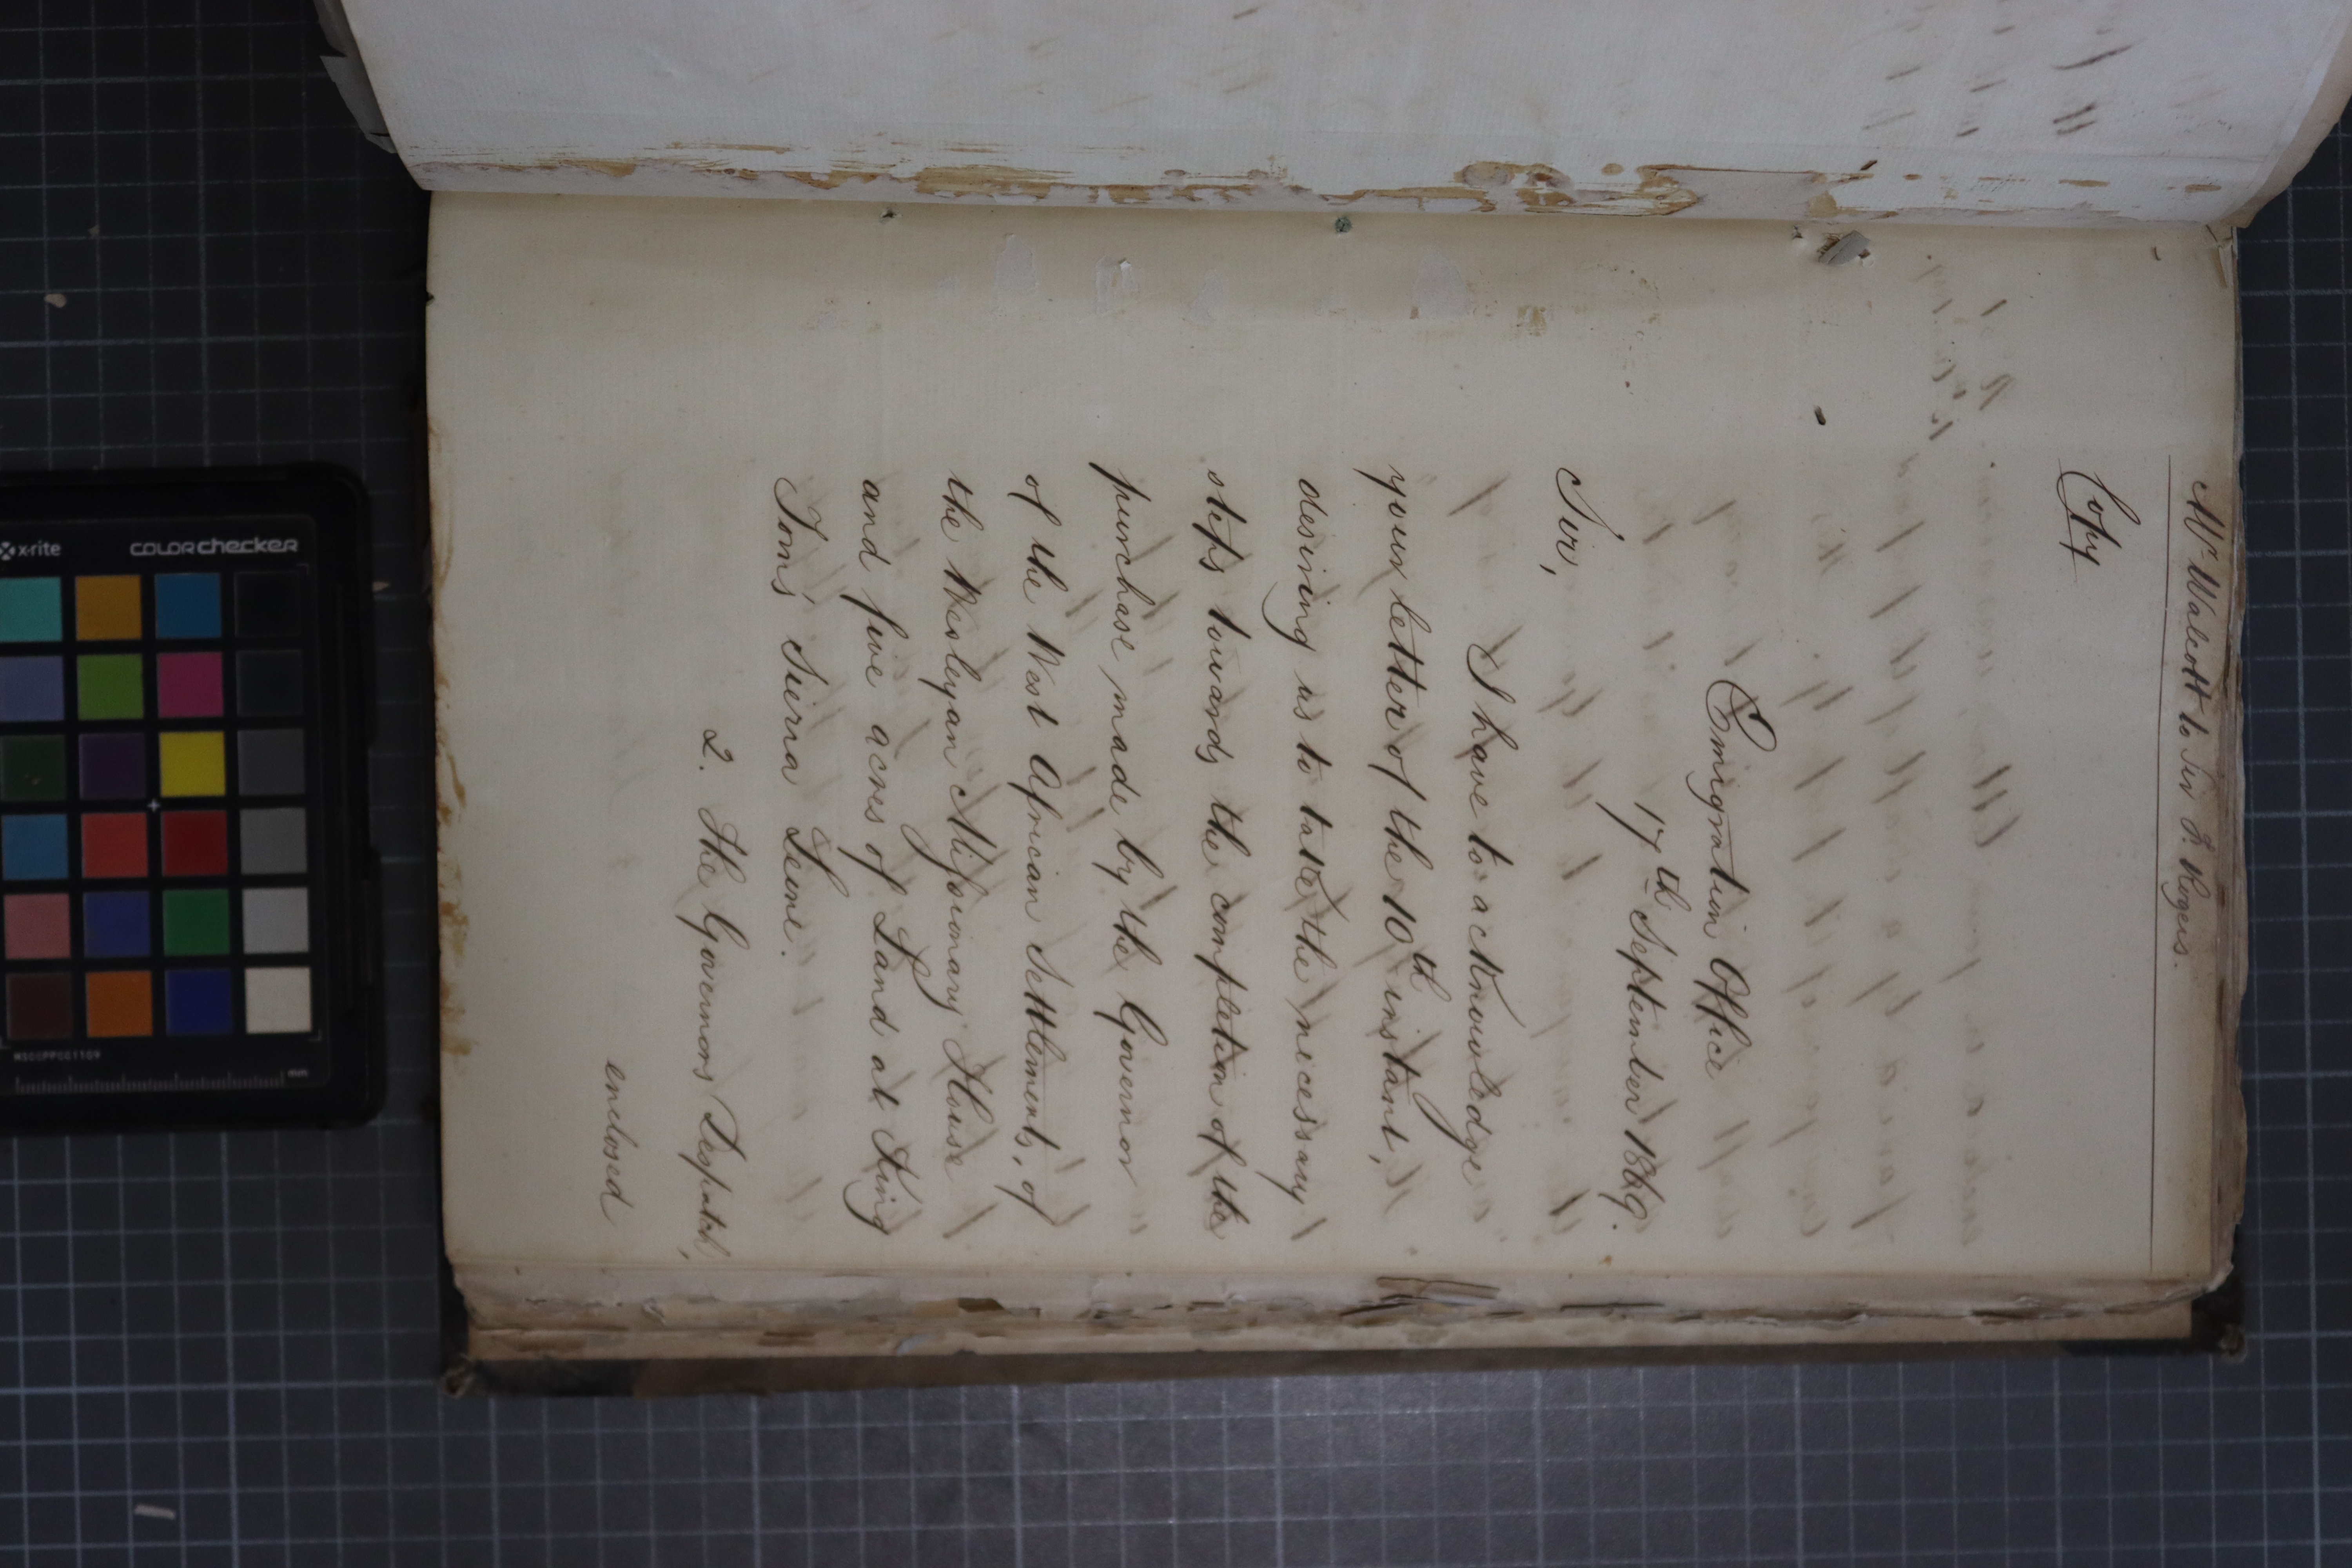 Mr Walcott to Sir F. Rogers.
Copy
Emigration Office
17th September 1869.
Sir,
I have to acknowledge
your letter of the 10th instant,
desiring us to take the necessary
steps towards the completion of the
purchase made by the Governor
of the West African Settlements, of
the Wesleyan Missionary House
and five acres of Land at King
Tom's Sierra Leone.
2. The Governors Despatch,
enclosed
x-rite
colorchecker
MSCCPPCC1109
mm